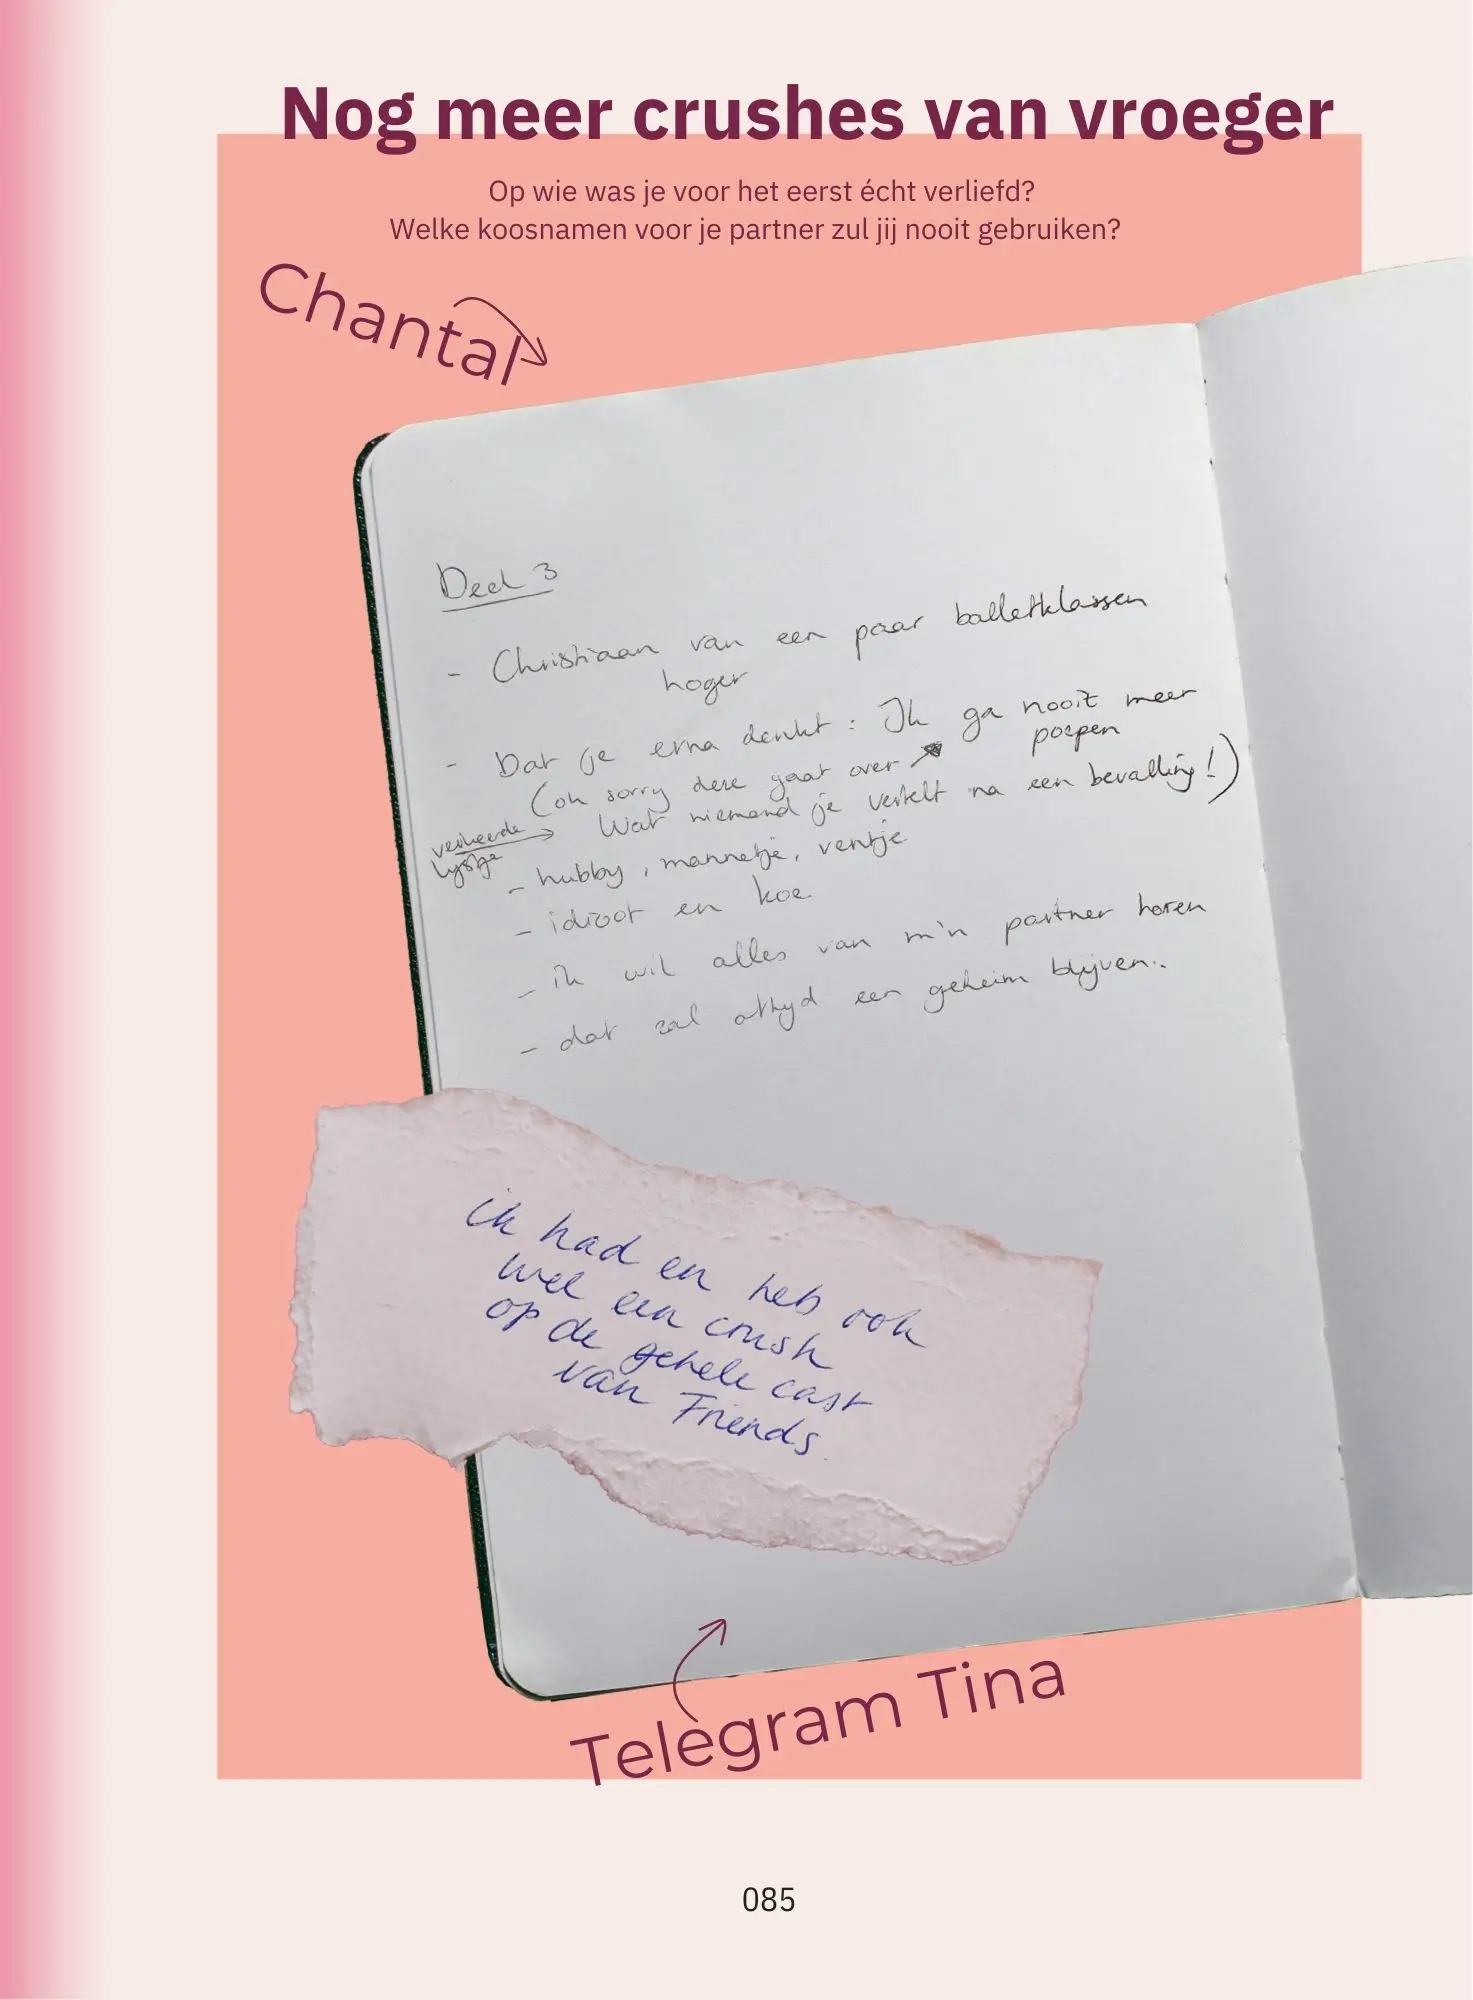 Nog meer crushes van vroeger
Op wie was je voor het eerst écht verliefd?
Welke koosnamen voor je partner zul jij nooit gebruiken?
Chantal
Deel 3
- Christiaan van een paar balletklassen
hoger
- Dat je erna denkt: Ik ga nooit meer
poepen
(oh sorry deze gaat over
Wat niemand je vertelt na een bevalling!)
verkeerde
lijstje
- hubby, mannetje, ventje
- idioot en koe
- ik wil alles van m'n partner horen
- dat zal altijd een geheim blijven..
ik had en heb ook
wel een crush
op de gehele cast
van Friends.
Telegram Tina
085